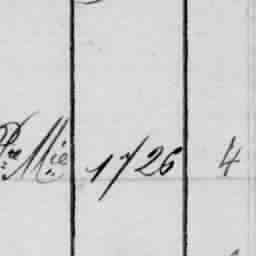 Pre Mie 1726 4